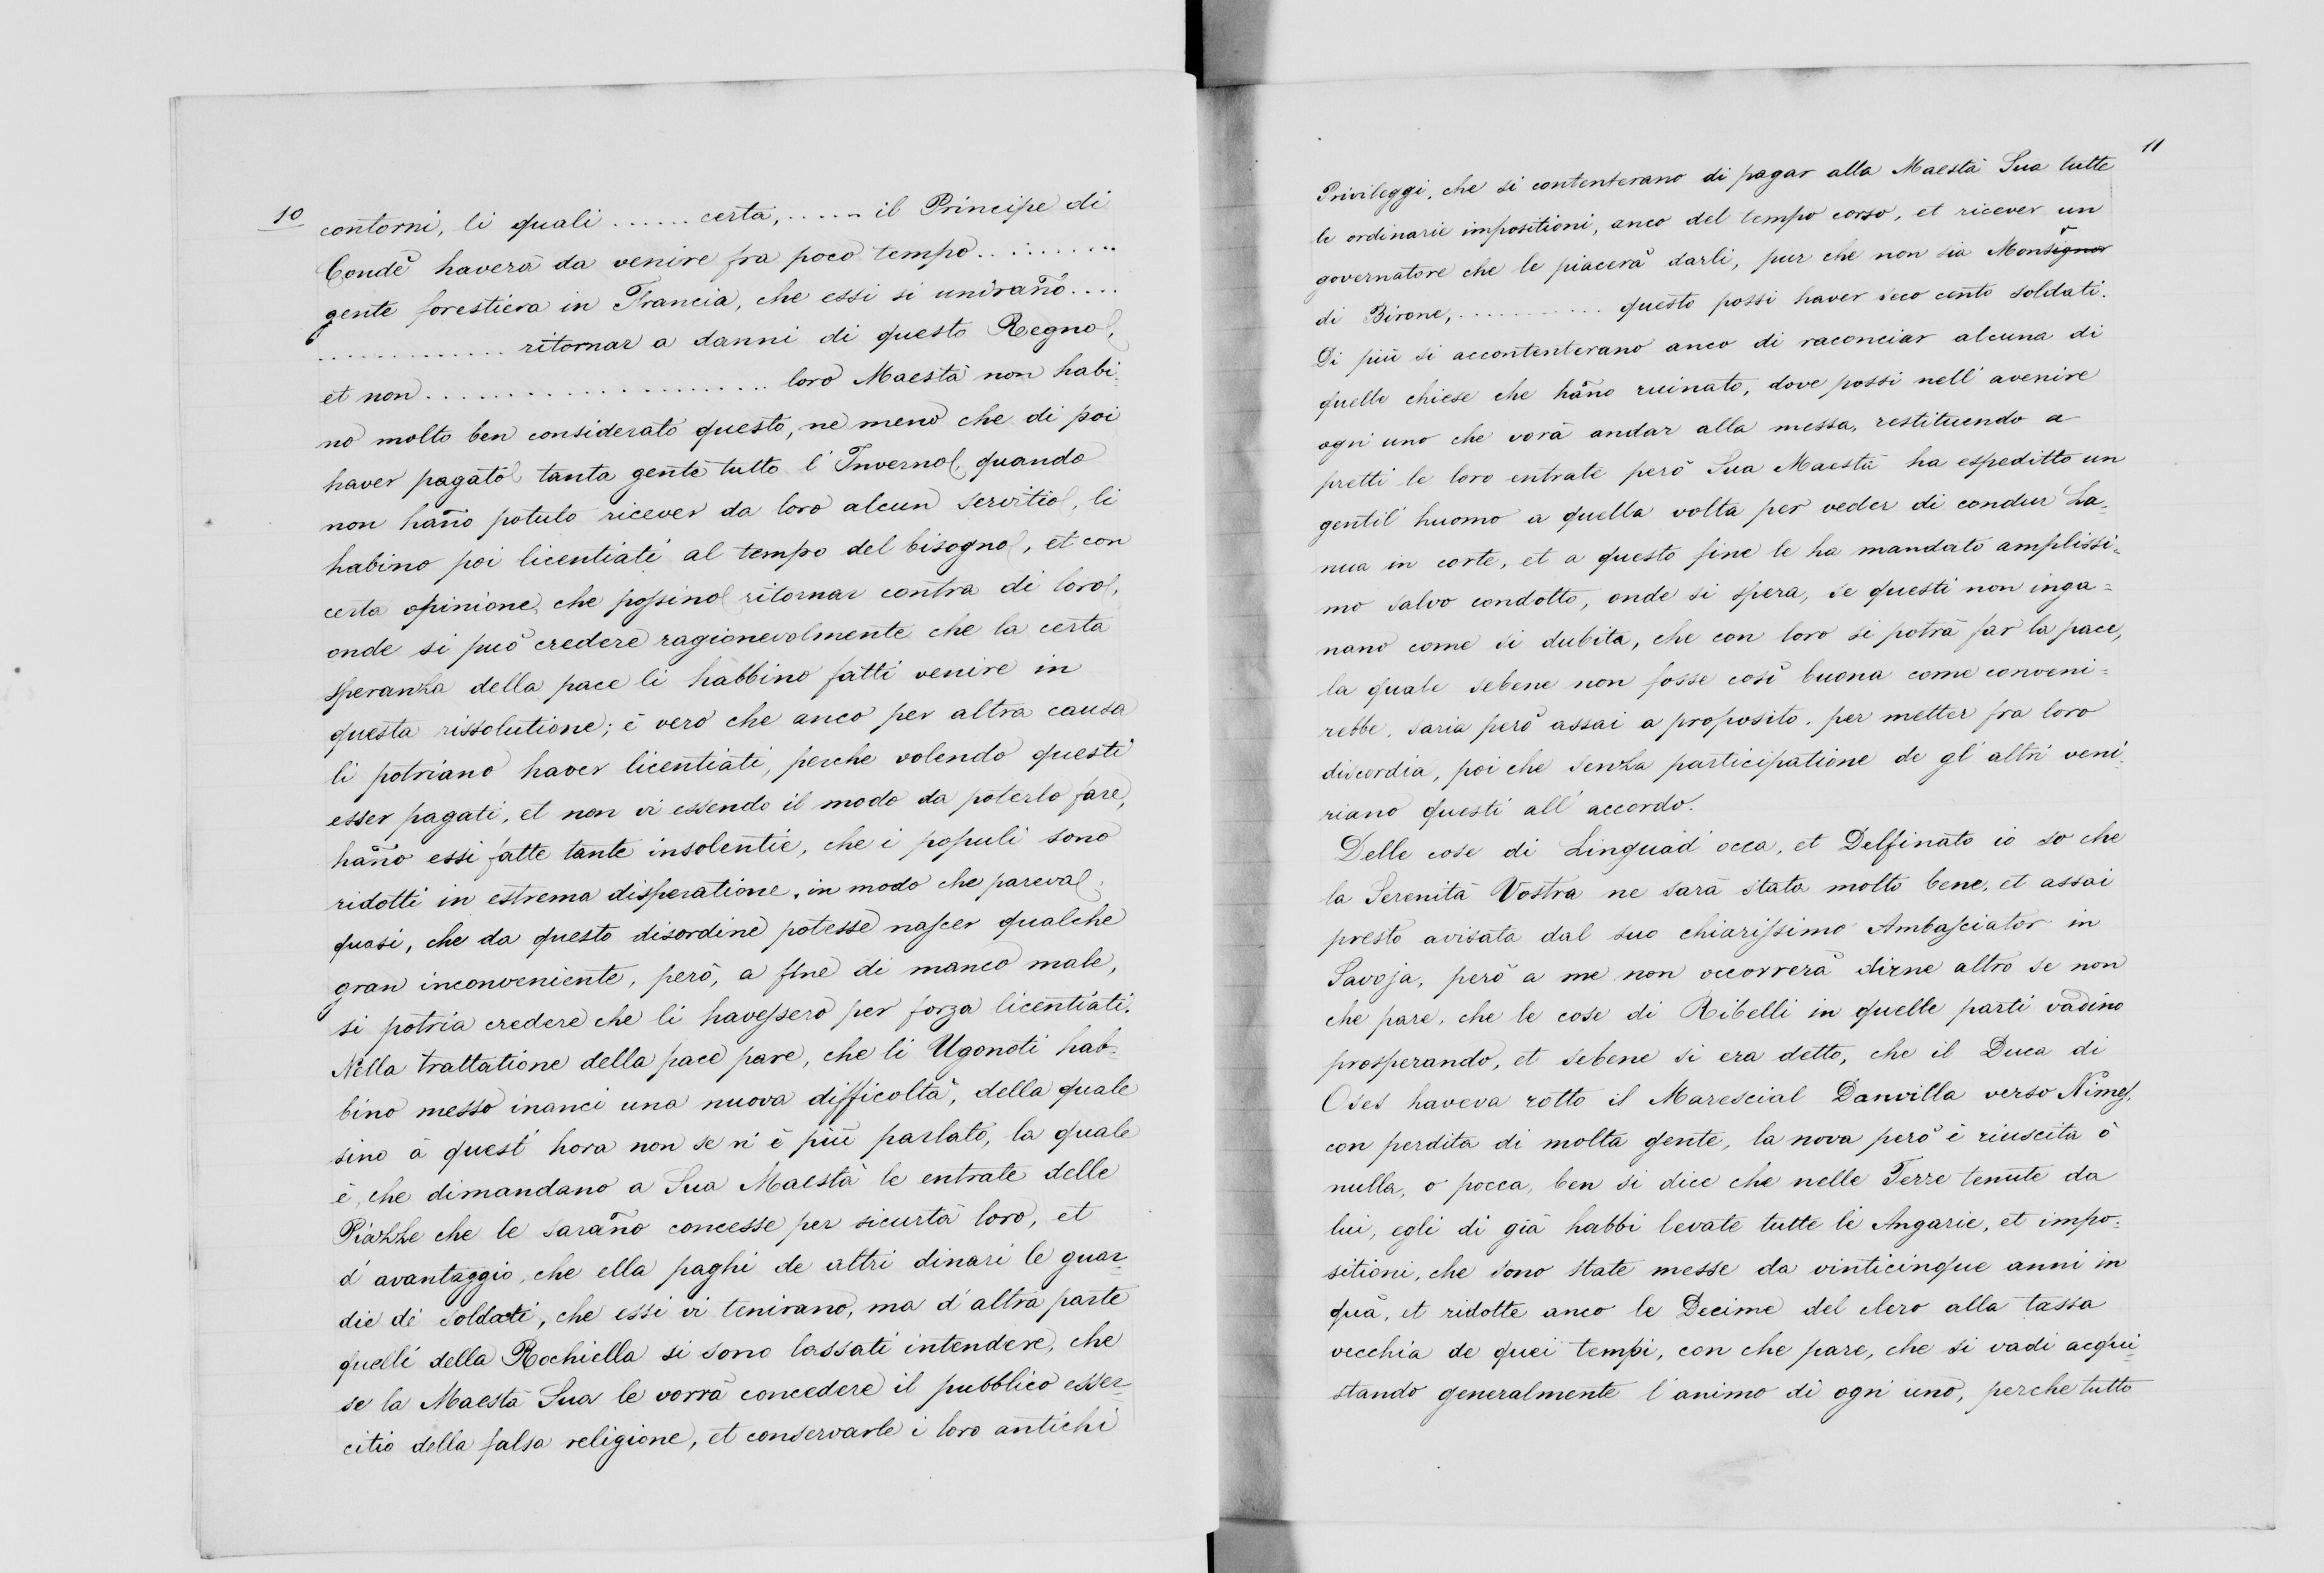 10
contorni, li quali ...... certa, ...... il Principe di
Condè haverà da venire fra poco tempo ..........
gente forestiera in Francia, che essi si unirano ....
............. ritornar a danni di questo Regno,
et non ........................ loro Maestà non habi-
no molto ben considerato questo, ne meno che di poi
haver pagato tanta gente tutto l'Inverno, quando
non hano potuto ricever da loro alcun servitio, li
habino poi licentiati al tempo del bisogno, et con
certa opinione, che possino ritornar contra di loro,
onde si può credere ragionevolmente che la certa
speranza della pace li habbino fatti venire in
questa rissolutione; è vero che anco per altra causa
li potriano haver licentiati, perche volendo questi
esser pagati, et non vi essendo il modo da poterlo fare,
hano essi fatte tante insolentie, che i populi sono
ridotti in estrema disperatione, in modo che pareva
quasi, che da questo disordine potesse nascer qualche
gran inconveniente, però, a fine di manco male,
si potria credere che li havessero per forza licentiati.
Nella trattatione della pace pare, che li Ugonoti hab-
bino messo inanci una nuova difficoltà, della quale
sino à quest'hora non se n'è più parlato, la quale
è, che dimandano a Sua Maestà le entrate delle
Piazze che le sarano concesse per sicurtà loro, et
d'avantaggio, che ella paghi de altri dinari le guar-
die di soldati, che essi vi tenirano, ma d'altra parte
quelli della Rochiella si sono lassati intendere, che
se la Maestà Sua le vorrà concedere il pubblico esser-
citio della falsa religione, et conservarle i loro antichi
11
Privileggi, che si contenterano di pagar alla Maestà Sua tutte
le ordinarie impositioni, anco del tempo corso, et ricever un
governatore che le piacerà darli, pur che non sia Monsignor
di Birone, ............ questo possi haver seco cento soldati.
Di più si accontenterano anco di raconciar alcuna di
quelle chiese che hano ruinato, dove possi nell'avenire
ogni uno che vorà andar alla messa, restituendo a
pretti le loro entrate però Sua Maestà ha espeditto un
gentil'huomo a quella volta per veder di condur La-
nua in corte, et a questo fine le ha mandato amplissi-
mo salvo condotto, onde si spera, se questi non inga=
nano come si dubita, che con loro si potrà far la pace,
la quale sebene non fosse così buona come conveni=
rebbe, saria però assai a proposito. per metter fra loro
discordia, poi che senza participatione de gl'altri veni-
riano questi all'accordo.
Delle cose di Linguad'occa, et Delfinato io so che
la Serenità Vostra ne sarà stata molto bene, et assai
presto avisata dal suo chiarissimo Ambasciator in
Savoja, però a me non occorrerà dirne altro se non
che pare, che le cose di Ribelli in quelle parti vadino
prosperando, et sebene si era detto, che il Duca di
Oses haveva rotto il Marescial Danvilla verso Nimes,
con perdita di molta gente, la nova però è riuscita ò
nulla, o pocca, ben si dice che nelle Terre tenute da
lui, egli di già habbi levate tutte le Angarie, et impo-
sitioni, che sono state messe da vinticinque anni in
quà, et ridotte anco le Decime del clero alla tassa
vecchia de quei tempi, con che pare, che si vadi acqui-
stando generalmente l'animo di ogni uno, perche tutto